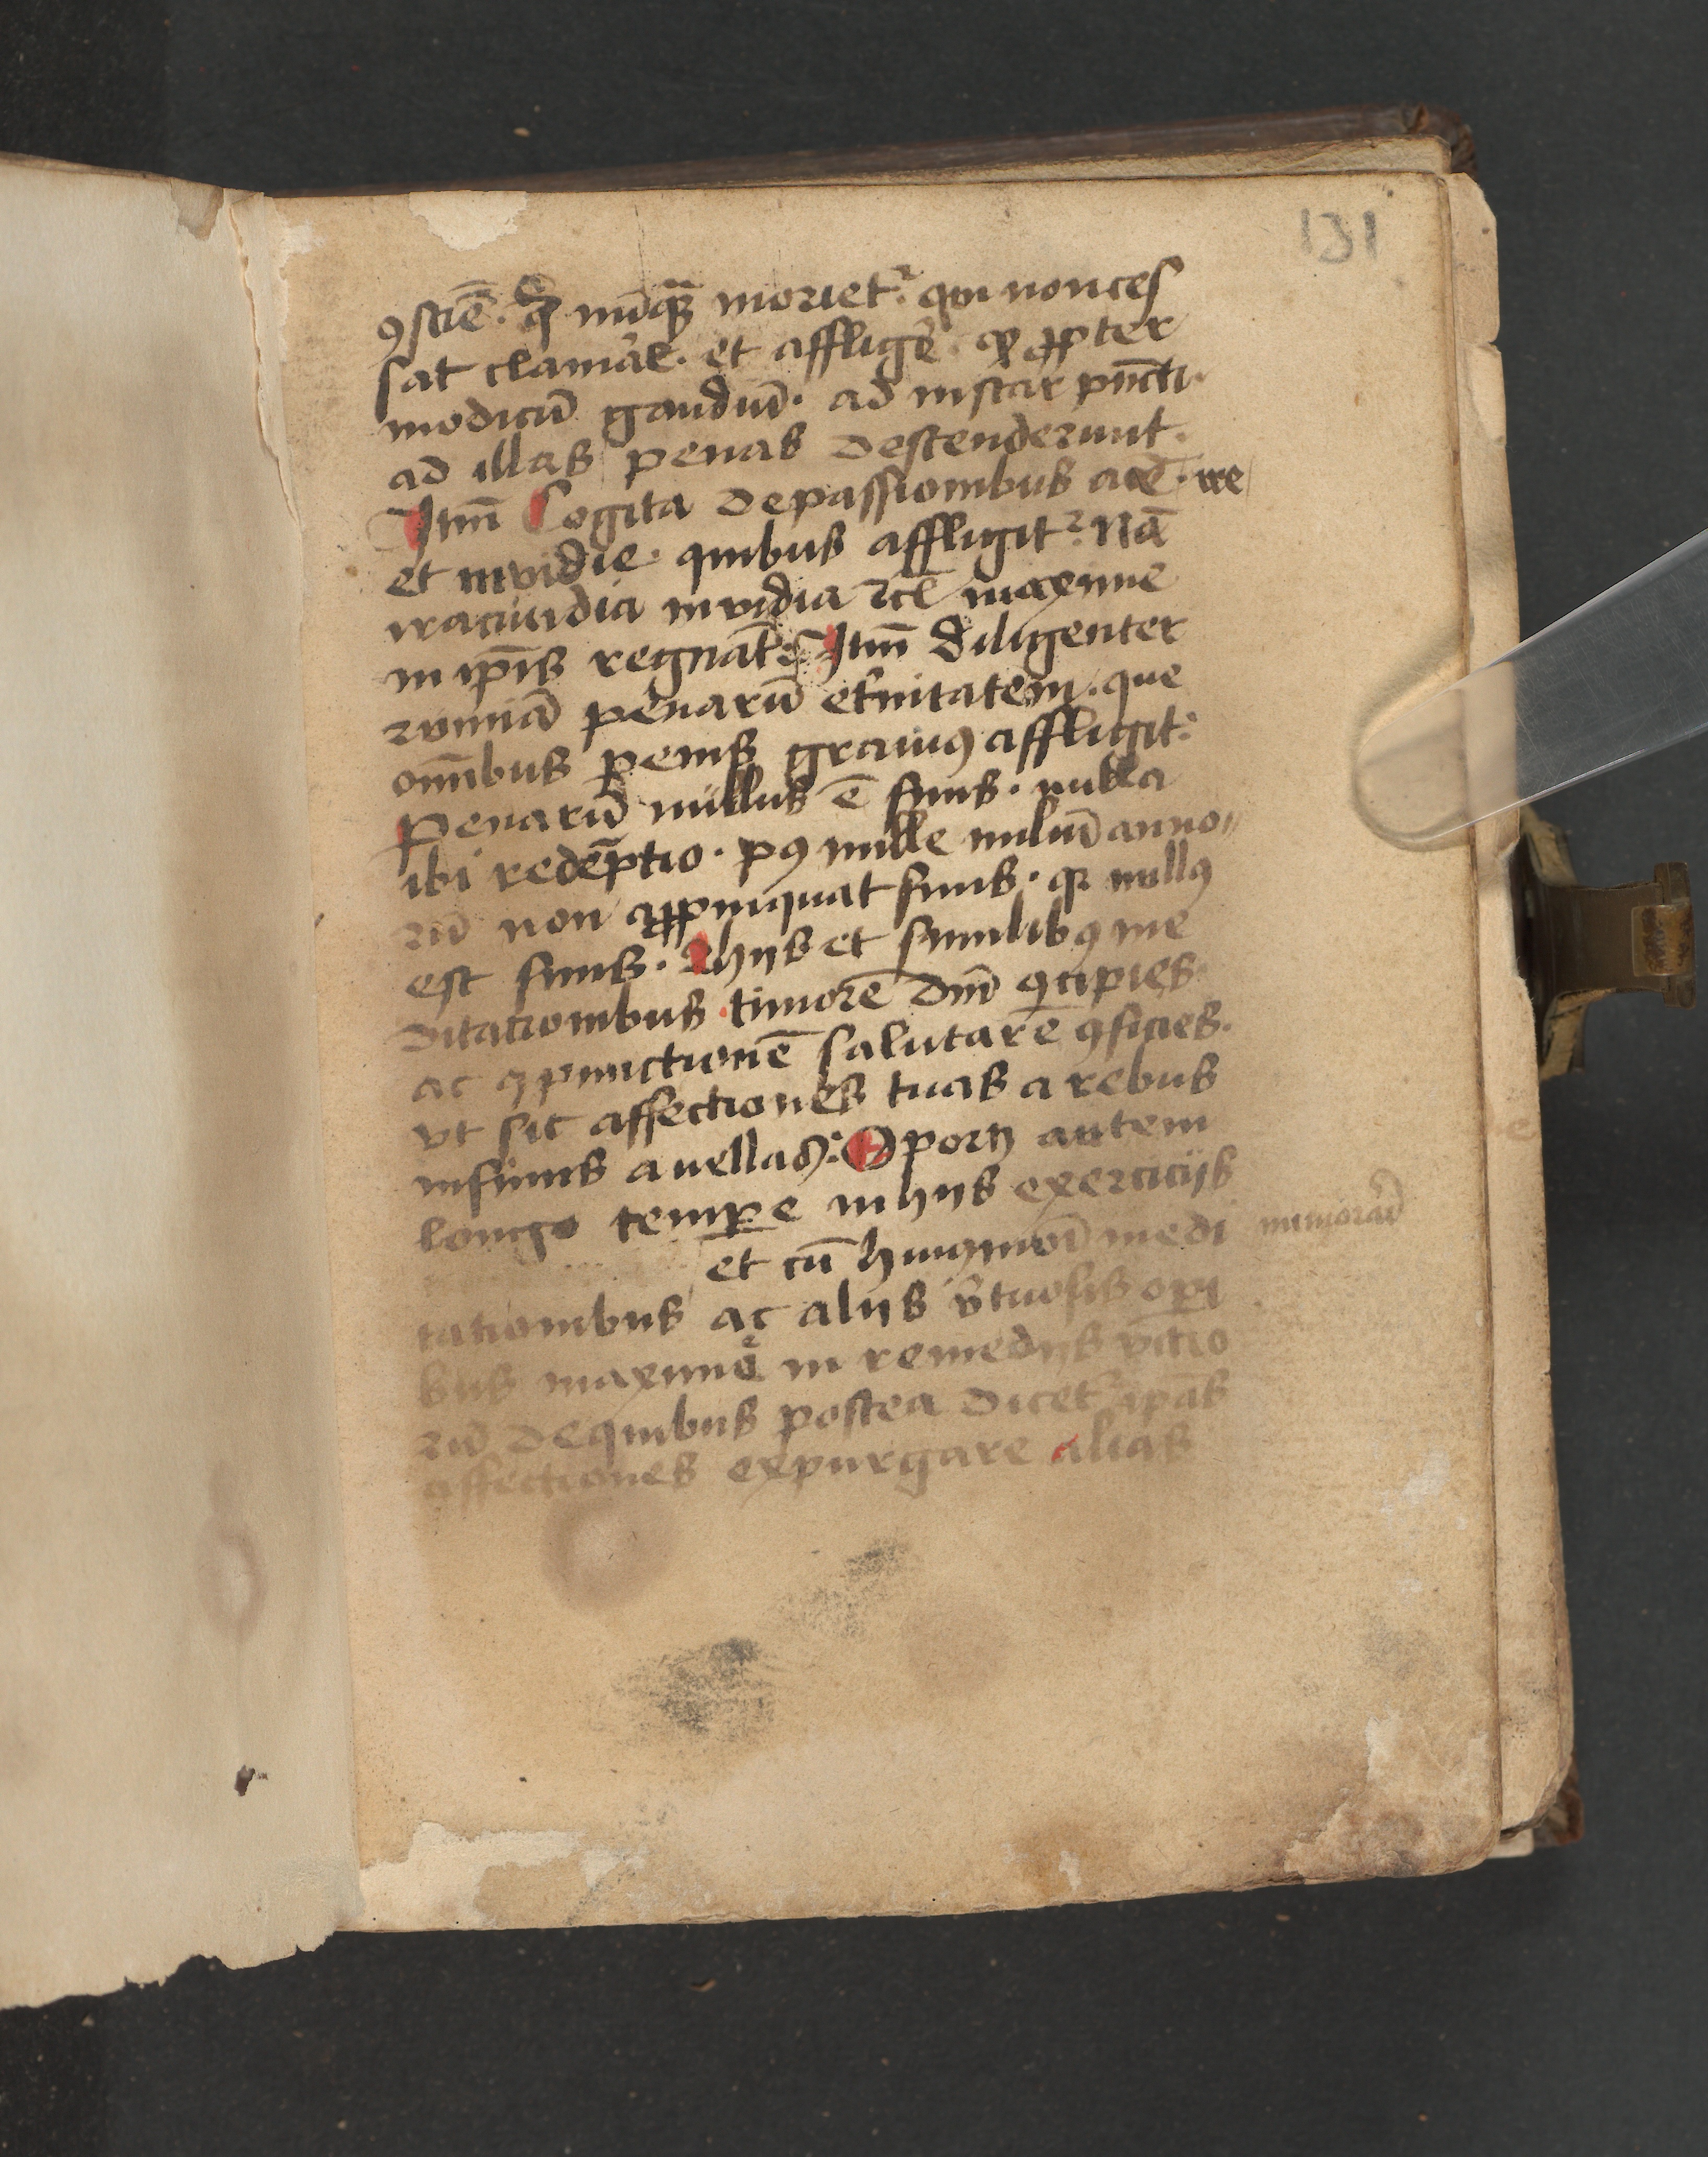 131
ꝯsciē. q̄ nūqȝ morietᷣ. qui non ces
sat clamãe. et affligẽ. qꝛ ꝓpter
modicū gaudiū. ad instar pūcti.
ad illas penas descenderunt.
Itm̄ Cogita de passionibus ac̄. ire
et inuidie. quibus affligitᷣ. Nā
iracundia inuidia ⁊cͣ maxime
in ip̄is regnāt: Itm̄ diligenter
rūmiā penarū et̓nitatem. que
om̄ibus penis grauiꝰ affligit:
Penarū nullus ē finis. nulla
ibi redēptio. pꝰ mille miliū anno
rū non ꝓpinquat finis. qꝛ nullꝰ
est finis. Ihijs et similibꝰ me
ditationibus timorē dnī ꝯcipies.
ac ꝯpunctionē salutarē ꝯficies.
vt sic affectiones tuas a rebus
infimis auellas: Oportꝫ autem
longo tempꝑe in hijs exercicijs
et cū huiꝰmōi medi
tationibus ac alijs v̓tuosis oꝑi
bus maxime in remedijs vicio
rū de quibus postea dicetᷣ ip̄as
affectiones expurgare alias